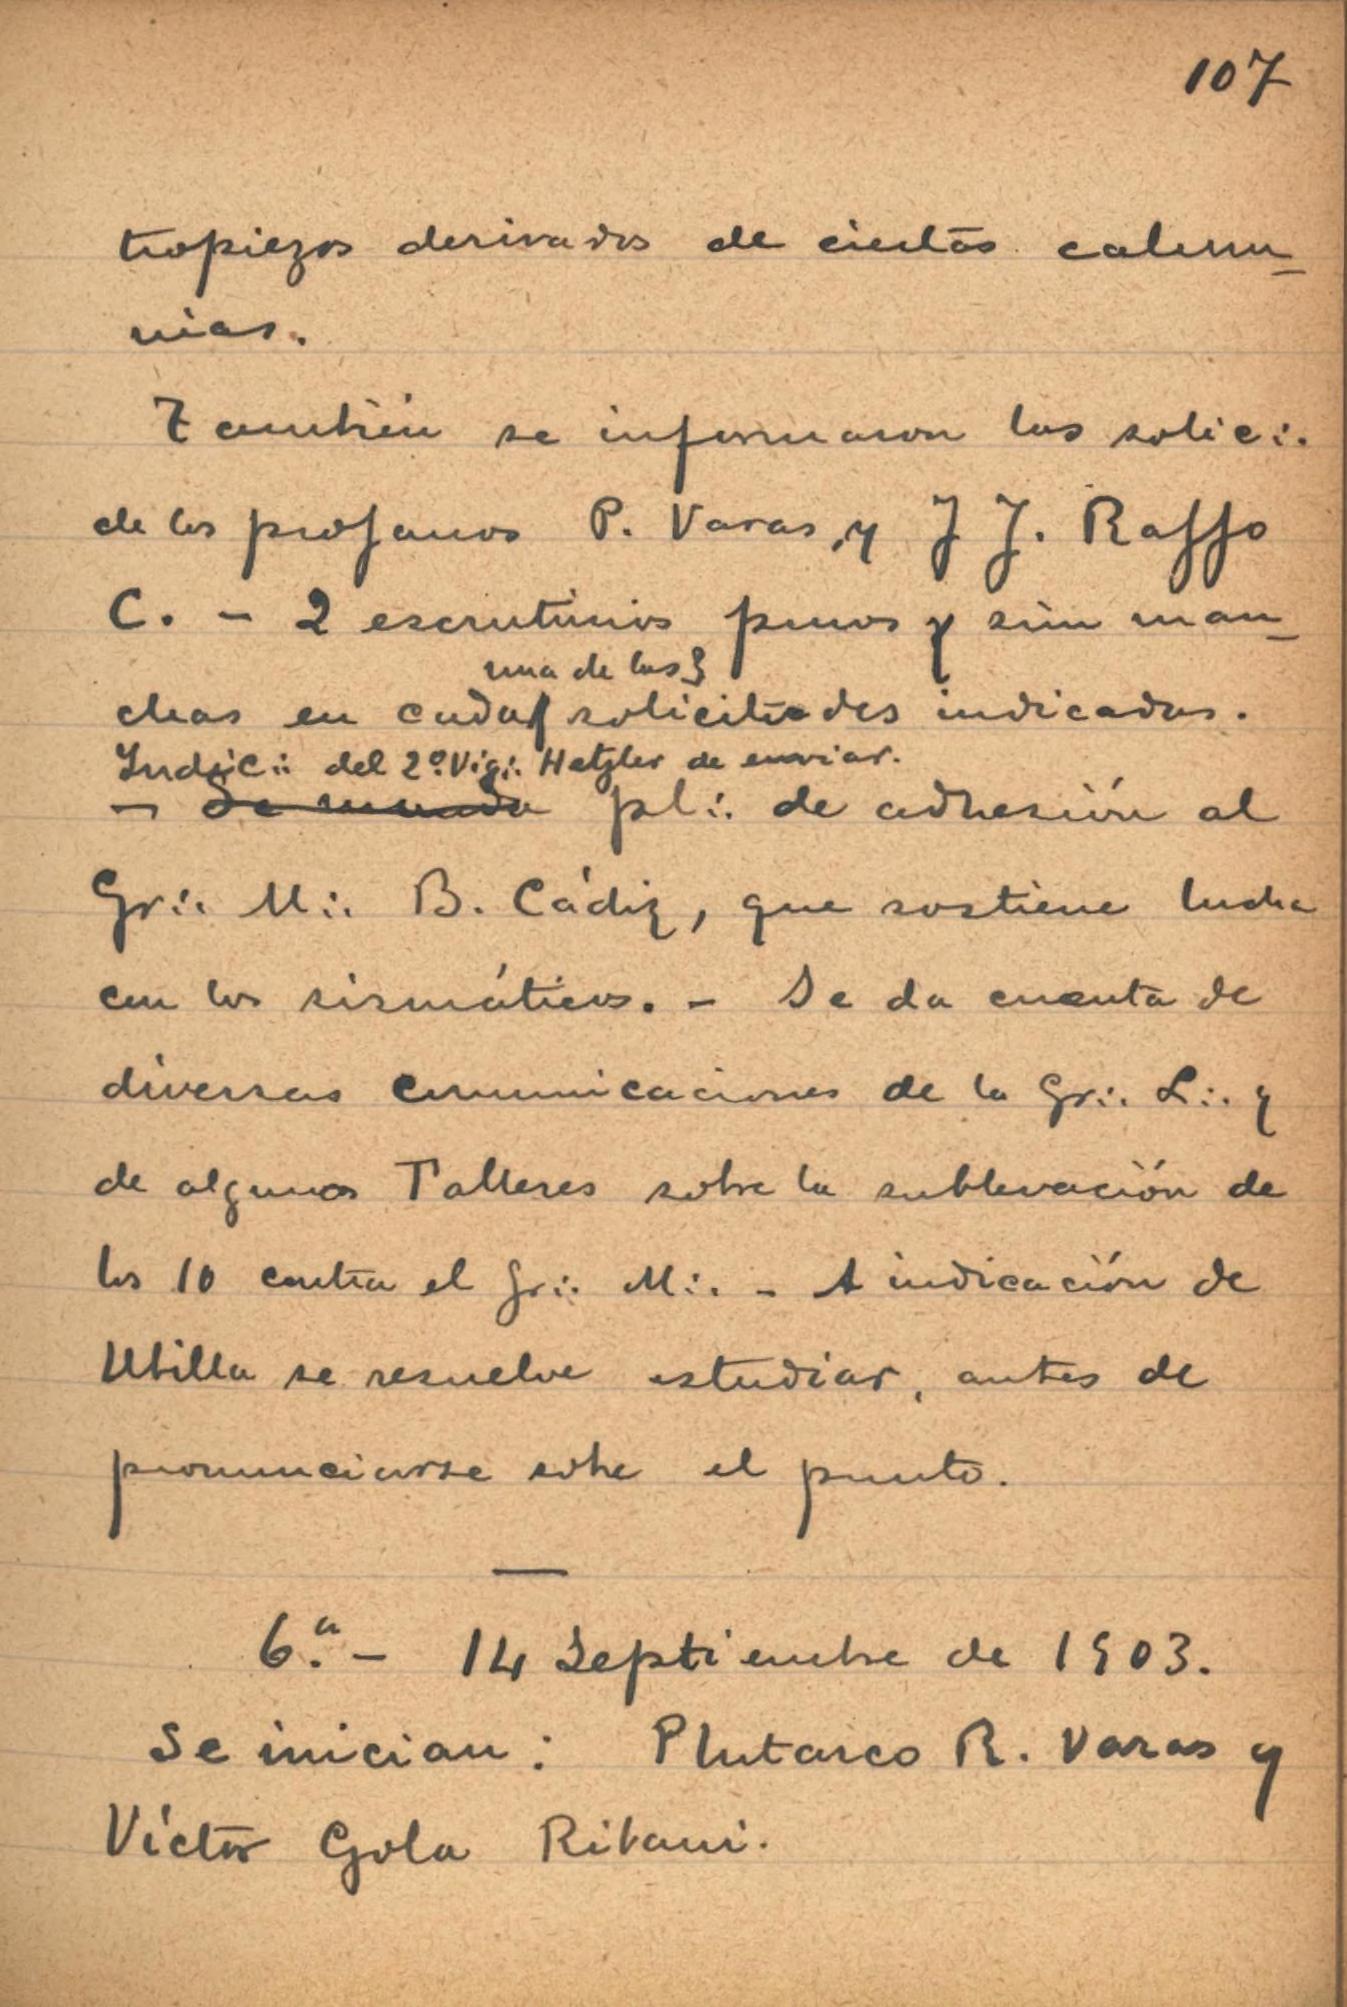 107
tropiezos derivados de ciertas calum-
nias.
También se informaron las solici∴
de los profanos P. Varas, y J J. Raffo
C. - 2 escrutinios puros y sin man-
una de las 3
chas en cada solicitudes indicadas.
Indic∴ del 2º Vig∴ Hetzler de enviar.
- Se manda pl∴ de adhesión al
Gr∴ M∴ B. Cádiz, que sostiene lucha
con los sismáticos. - Se da cuenta de
diversas comunicaciones de la Gr∴ L∴ y
de algunos Talleres sobre la sublevación de
los 10 contra el Gr∴ M∴ - A indicación de
Ubilla se resuelve estudiar, antes de
pronunciarse sobre el punto.
6.ª - 14 Septiembre de 1903.
Se inician: Plutarco R. Varas y
Víctor Gola Ribani.